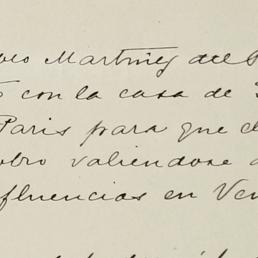 Martinez del
con la casa de
Paris para que el
valiendose
fluencias en Ven